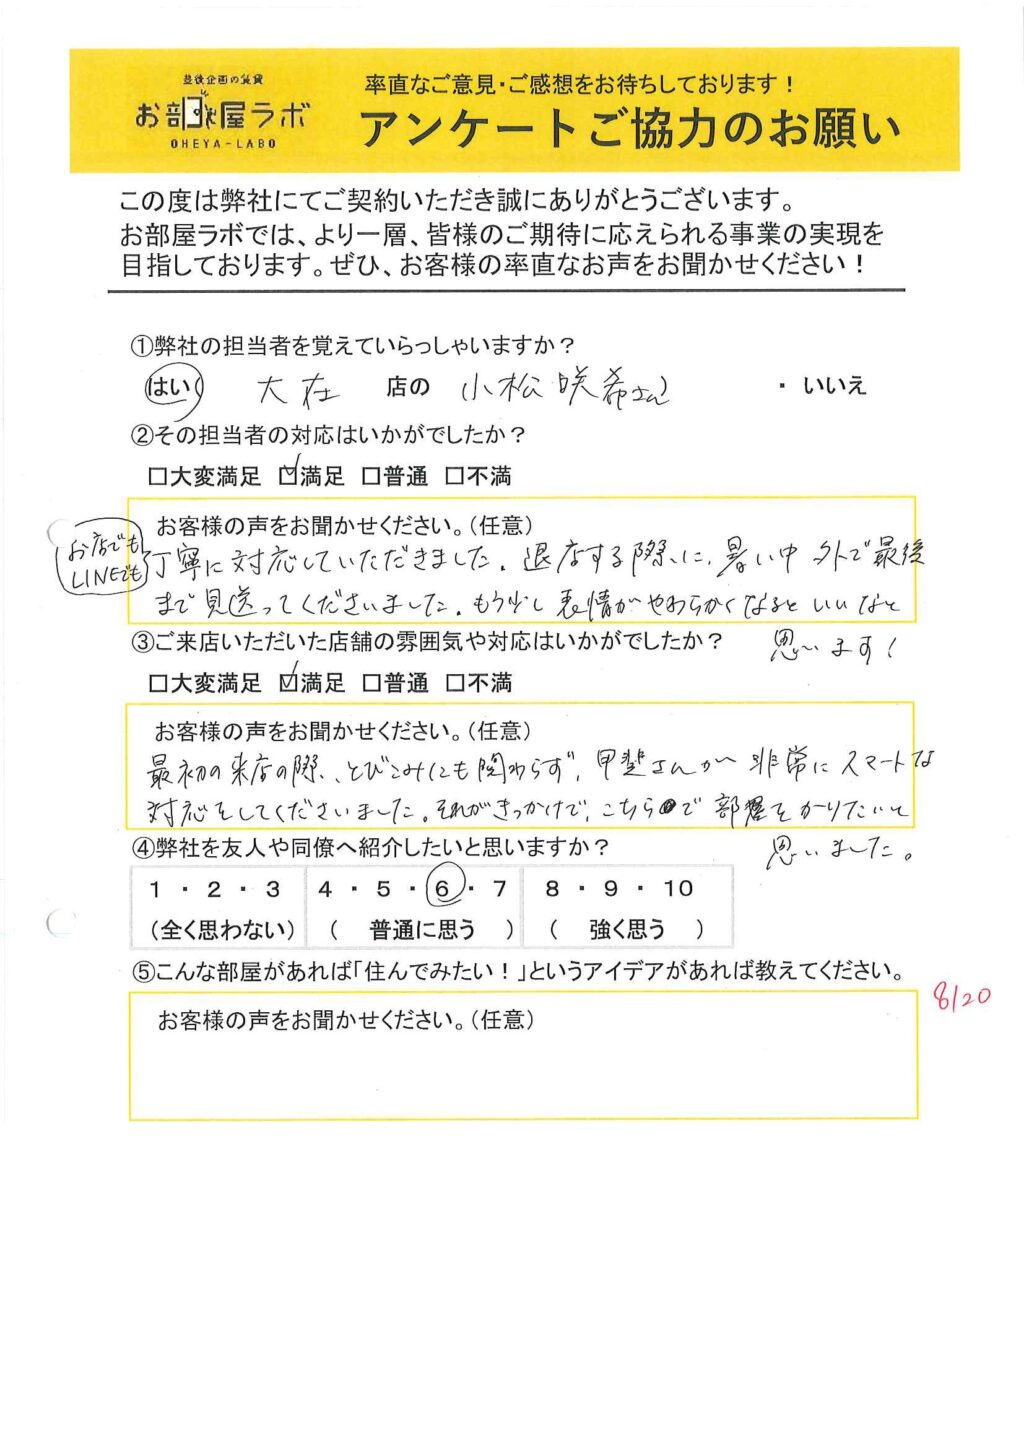 豊後企画の賃貸
お部屋ラボ
OHEYA-LABO
率直なご意見・ご感想をお待ちしております！
アンケートご協力のお願い
この度は弊社にてご契約いただき誠にありがとうございます。
お部屋ラボでは、より一層、皆様のご期待に応えられる事業の実現を
目指しております。ぜひ、お客様の率直なお声をお聞かせください！
①弊社の担当者を覚えていらっしゃいますか？
はい 大在 店の 小松咲希さん ・ いいえ
②その担当者の対応はいかがでしたか？
□大変満足 ☑満足 □普通 □不満
お客様の声をお聞かせください。（任意）
お店でも
LINEでも
丁寧に対応していただきました。退店する際に、暑い中外で最後
まで見送ってくださいました。もう少し表情がやわらかくなるといいなと
思います！
③ご来店いただいた店舗の雰囲気や対応はいかがでしたか？
□大変満足 ☑満足 □普通 □不満
お客様の声をお聞かせください。（任意）
最初の来店の際、とびこみにも関わらず、甲斐さんが非常にスマートな
対応をしてくださいました。それがきっかけで、こちらで部屋をかりたいと
思いました。
④弊社を友人や同僚へ紹介したいと思いますか？
1 ・ 2 ・ 3 4 ・ 5 ・ 6 ・ 7 8 ・ 9 ・ 10
（全く思わない） （ 普通に思う ） （ 強く思う ）
⑤こんな部屋があれば「住んでみたい！」というアイデアがあれば教えてください。
8/20
お客様の声をお聞かせください。（任意）